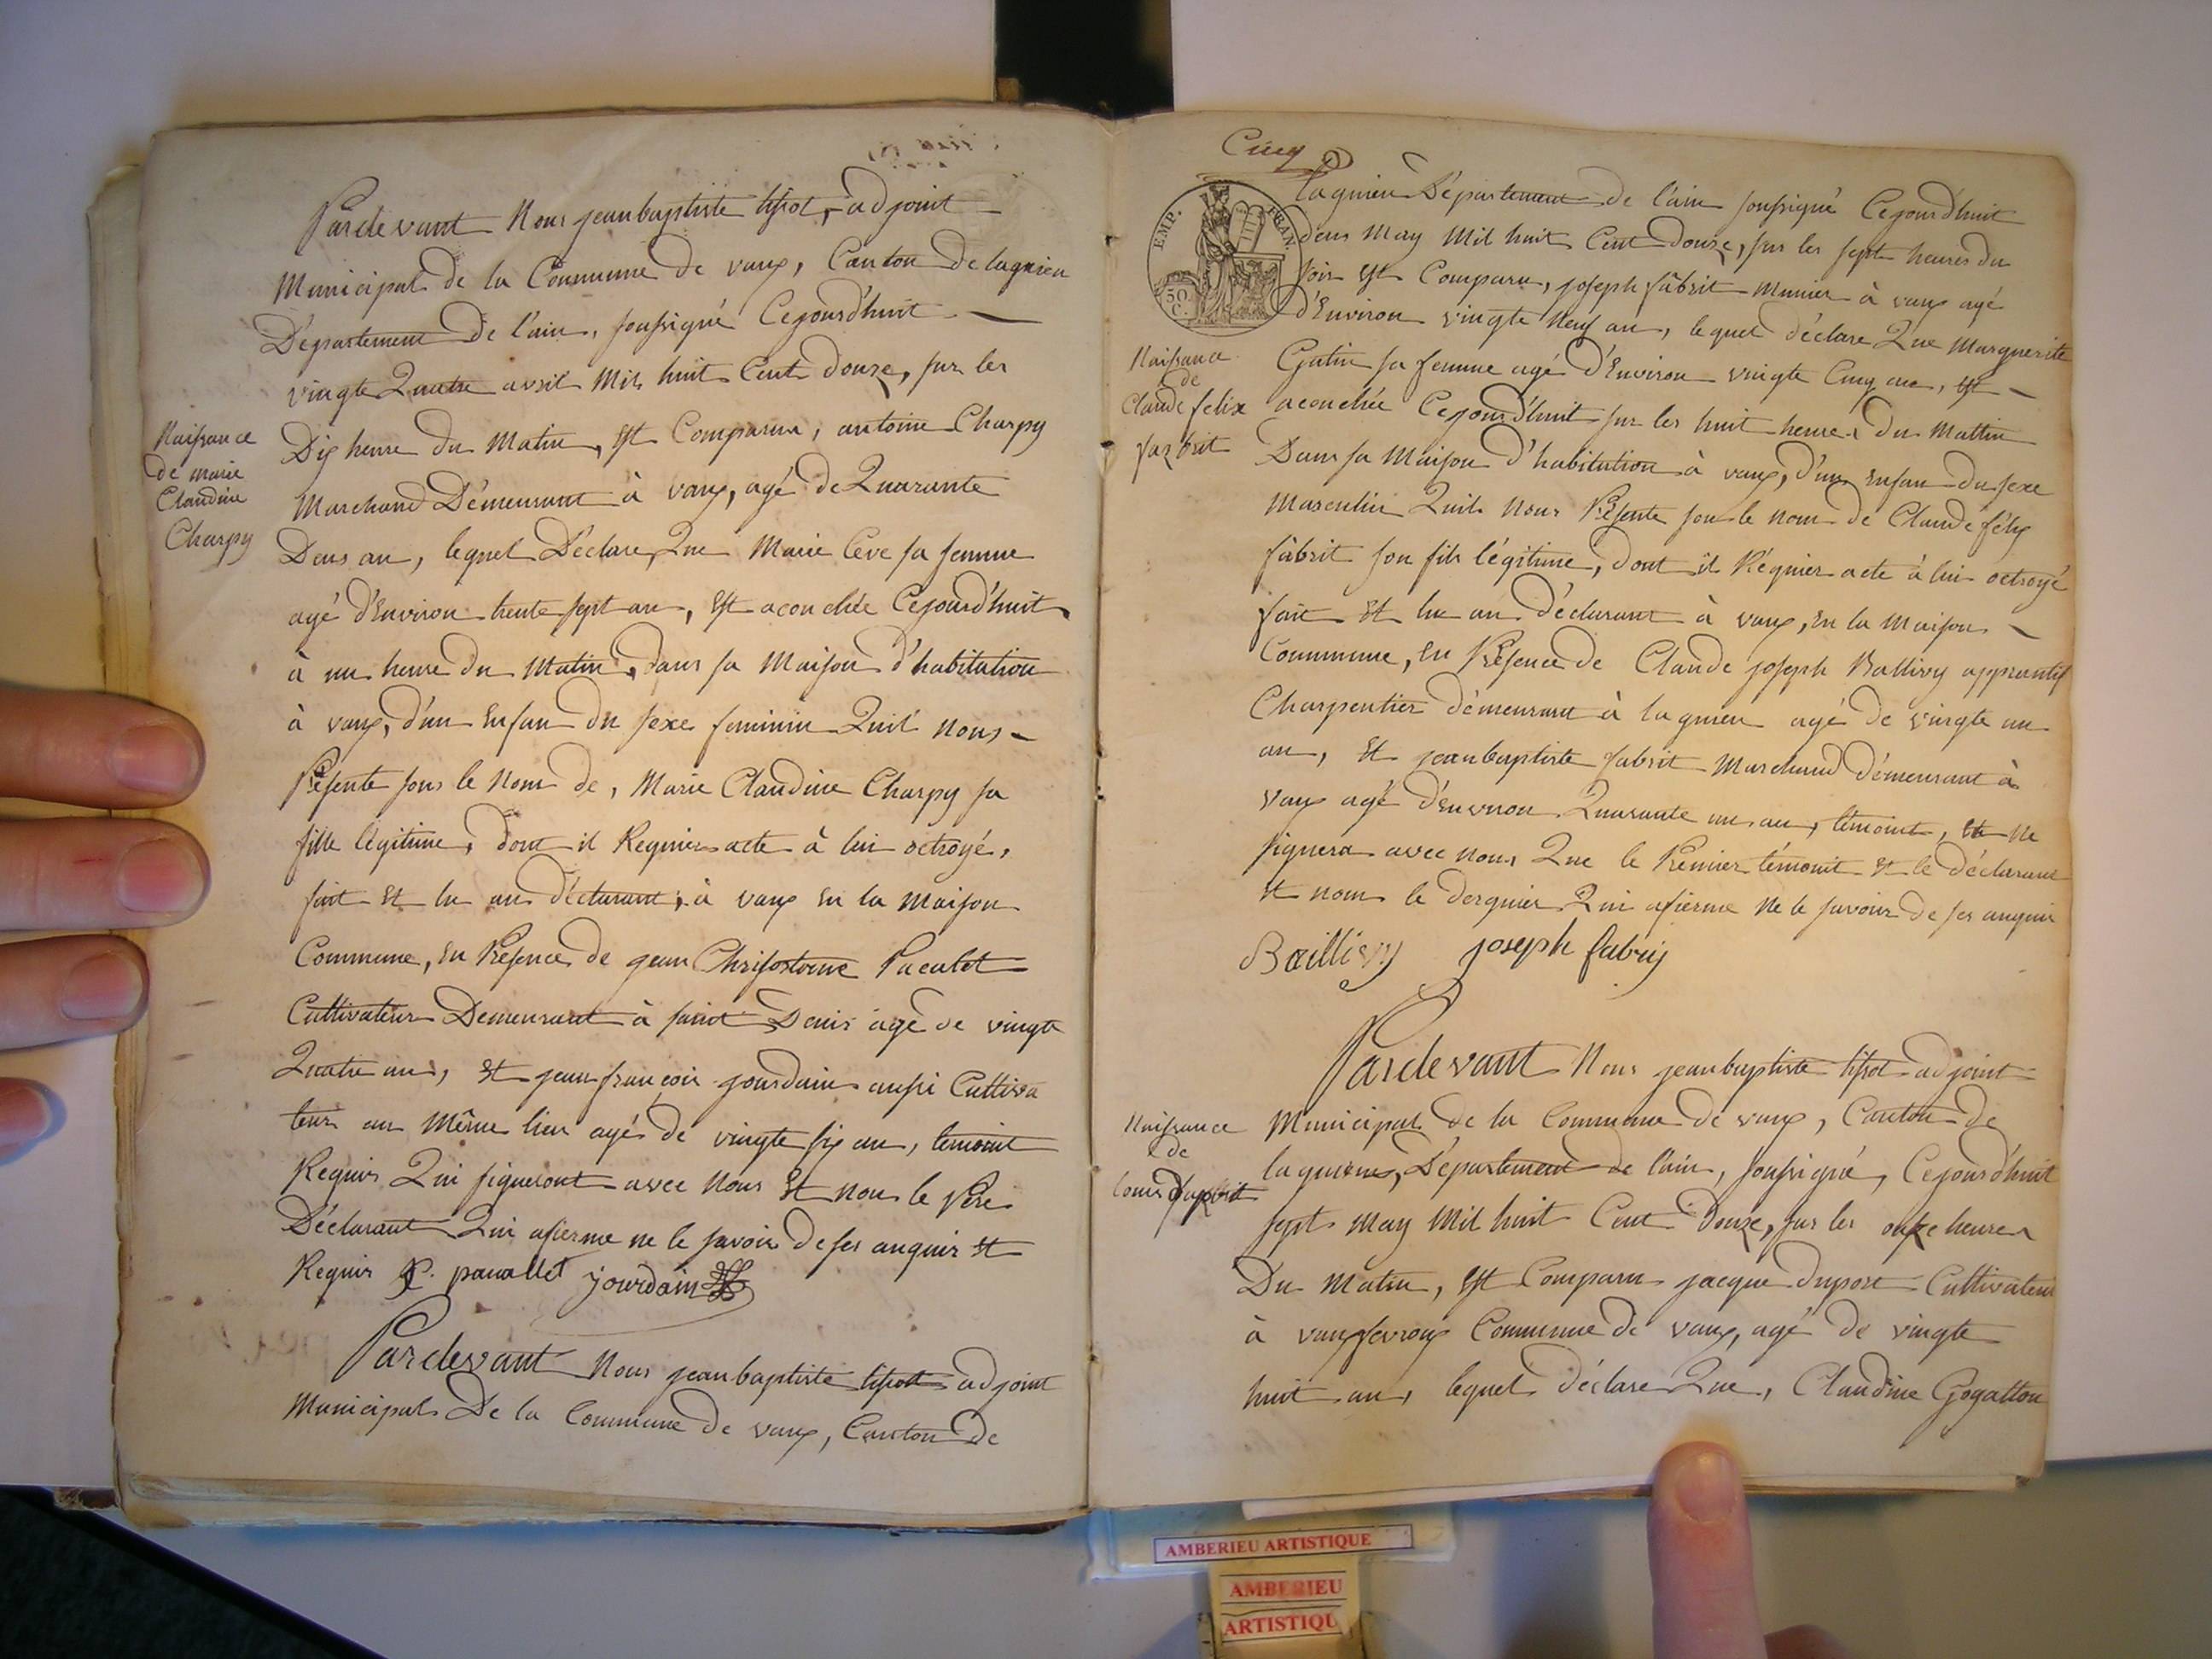 Pardevant Nous jean baptiste tisot, adjoint
Municipal de la Commune de vaux, Canton de lagnieu
Département de l'ain, soussigné Cejourd'huit
vingte Quatre avril Mil huit Cent Douze, sur les
Dix heure du Matin, Est Comparu, antoine Charpy
Marchand Démeurant à vaux, agé de Quarante
Deus an, lequel Déclare, Que Marie Ceve sa femme
agé d'Environ trente sept an, Est acouchée Cejourd'huit
à un heure du Matin, Dans sa Maison d'habitation
à vaux, d'un Enfan du sexe feminin Quil nous
Présente sous le Nom de, Marie Claudine Charpy sa
fille légitime, dont il Requier acte à lui octroyé,
fait Et lu au déclarant, à vaux En la Maison
Commune, En Présence de jean Chrisostome Pacalet
Cultivateur Demeurant à saint Denis agé de vingte
Quatre ans, Et jean françois jourdain aussi Cultiva
teur au Même lieu agés de vingte six an, temoint
Requis Qui signeront avec Nous Et non le Père
Déclarant Qui afierme ne le savoir de ses anquis Et
Requis C. pacallet jourdain
Pardevant Nous jean baptiste tisot adjoint
Municipal De la Commune de vaux, Canton de
Naissance
de marie
Claudine
Charpy
Cinq
EMP. FRAN.
50
C.
lagnieu Département de l'ain soussigné Cejourd'huit
deus May Mil huit Cent Douze, sur les sept heures du
soir Est Comparu, joseph fabrit Munier à vaux agé
d'Environ vingte Neuf an, lequel déclare Que Marguerite
Gutin sa femme agé d'Environ vingte Cinq ans, Est
acouchée Cejourd'huit sur les huit heures du Mattin
Dans sa Maison d'habitation à vaux, d'un Enfan du sexe
Masculin Quil Nous Présente sou le nom de Claude félix
fabrit son fils légitime, dont il Réquier acte à lui octroyé
fait Et lu au déclarant à vaux, En la Maison
Commune, En Présence de Claude joseph Ballivy apprentif
Charpentier démeurant à lagnieu agé de vingte un
an, Et jean baptiste fabrit Marchand démeurant à
vaux agé d'Environ Quarante un an, témoint, Et Ne
signera avec nous Que le Premier témoint Et le déclarant
Et nom le dergnier Qui afierme Ne le savoir de ses anquis
Baillivy joseph fabrij
Naissance
de
Claude felix
fabrit
Pardevant Nous jean baptiste tisot adjoint
Municipal de la Commune de vaux, Canton de
lagnieu, Département de l'ain, soussigné, Cejourd'huit
sept May Mil huit Cent Douze, sur les onze heures
Du Matin, Est Comparu jacque duport Cultivateur
à vauxfevroux Commune de vaux, agé de vingte
huit an, lequel déclare Que, Claudine Gogatton
Naissance
de
louis
AMBERIEU ARTISTIQUE
AMBERIEU
ARTISTIQU